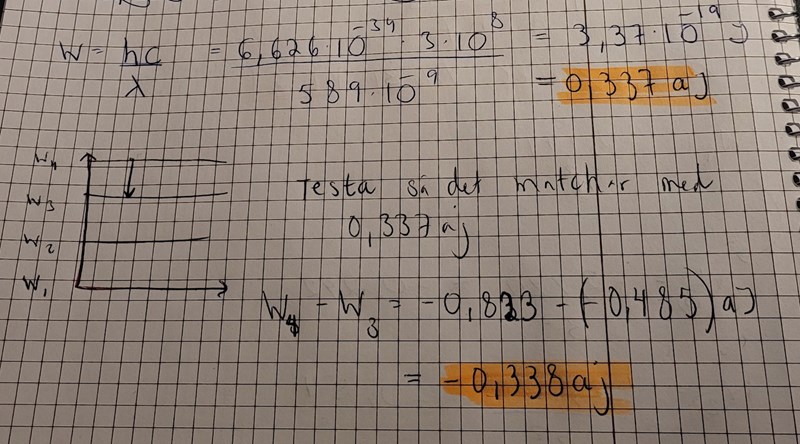 W = hc/λ = 6,626·10^-34 · 3·10^8 / 589·10^-9 = 3,37·10^-19 J
= 0,337 aj
W4
W3
W2
W1
Testa så det matchar med
0,337 aj
W4 - W3 = -0,823 - (-0,485) aJ
= -0,338 aj